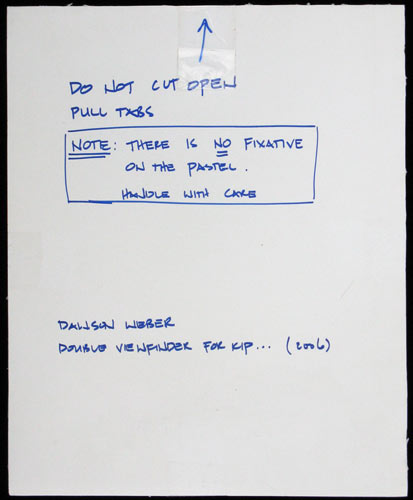 DO NOT CUT OPEN
PULL TABS
NOTE: THERE IS NO FIXATIVE
ON THE PASTEL.
HANDLE WITH CARE
DAWSON WEBER
DOUBLE VIEWFINDER FOR KIP... (2006)